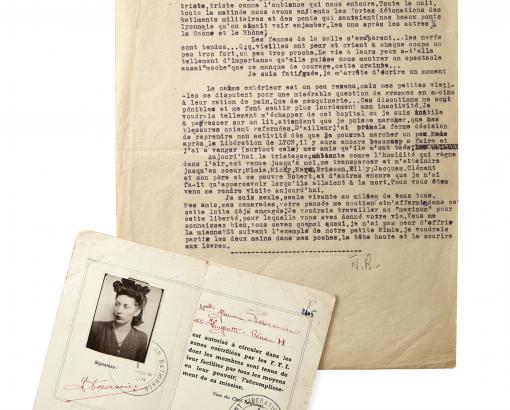 triste,triste comme l'ambiance qui nous entoure.Toute la nuit,
toute la matinée nous avons entendu les fortes détonations des
batiments militaires et des ponts qui sautaient(nos beaux ponts
lyonnais qu'on aimait voir enjamber,les uns après les autres
la Saone et le Rhône)
Les femmes de la salle s'exaspèrent...les nerfs
sont tendus...Q;q.vieilles ont peur et crient à chaque coups un
peu trop fort,un peu trop proche.La vie à leurs yeux a-t'elle
tellement d'importance qu'elle puisse nous montrer un spectacle
aussi"moche"que ce manque de courage,cette crainte...
Je suis fatiguée,je m'arrête d'écrire un moment
Le calme extérieur est un peu revenu,mais mes petites vieil-
-les se disputent pour une misérable question de grammes en moins
à leur ration de pain.Que de mesquinerie...Ces discutions me sont
pénibles et me font sentir plus lourdement mon inactivité.Je
voudrais tellement m'échapper de cet hopital ou je suis inutile
à paresser sur un lit,attendant que je puisse marcher,que mes
blessures soient refermées.D'ailleur,j'ai pris la ferme décision
de reprendre mon activité dès que je pourrai marcher un peu.Mais
après la Libération de LYON,il y aura encore beaucoup à faire et
j'ai à venger(surtout cela)mes amis qu'ils m'ont tués,
Aujourd'hui la tristesse,méchante comme l'humidité qui règne
dans l'air,est venue jusqu'à moi,me transpercer et m'atteindre
jusqu'en coeur;Mimie,Vicky,Marc,Brisson,Milly,Jacques,Clément
et son père et ce pauvre Robert,et d'autres encore que je n'ai
fa-it qu'appercevoir lorqu'ils allaient à la mort,Tous vous êtes
venu me rendre visite aujourd'hui.
Je suis seule,seule vivante au milieu de vous tous.
Mes amis,mes camarades,votre pensée me soutient et m'affermit dans
cette lutte déjà engagée;Je voudrais travailler au"maximum"pour
cette liberté,pour laquelle vous avez donné votre vie.Vous me
connaissez bien,vous savez quoique aussi,je n'ai pas peur d'offrir
la mienne Et suivant l'exemple de notre petite Mimie,je voudrais
partir les deux mains dans mes poches,la tête haute et le sourire
aux lèvres.
Melle Jeanne
est autorisé à circuler dans les
zones contrôlées par les F. F. I.
dont les membres sont tenus de
leur faciliter par tous les moyens
en leur pouvoir, l'accomplisse-
ment de sa mission.
Signature :
Visa du Chef